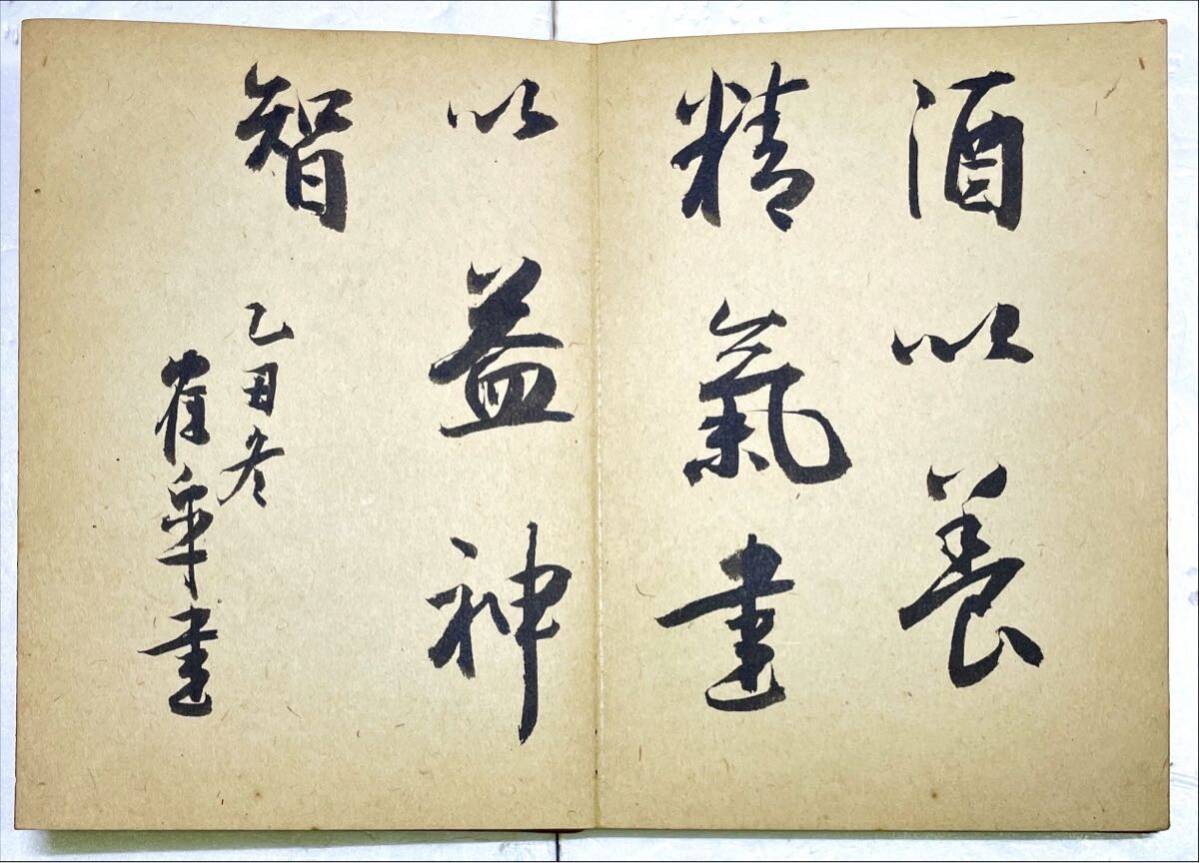 酒以養
精氣書
以益神
智
乙丑冬
有年書